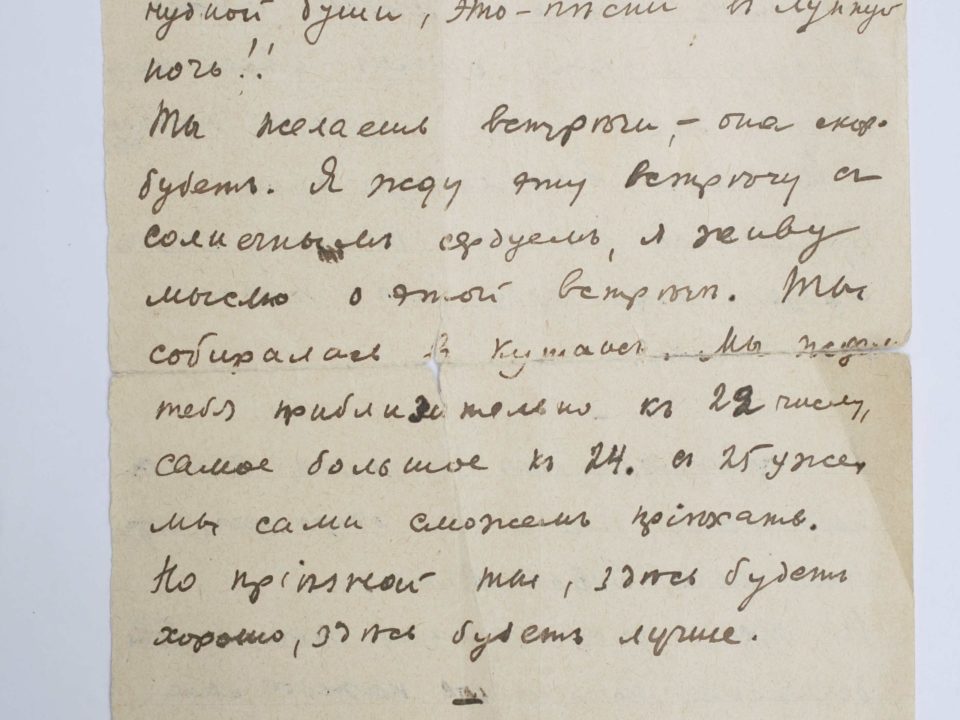 чудной души, это – пѣсни въ лунную
ночь!!
Ты желаешь встрѣчи, – она скоро
будетъ. Я жду эту встрѣчу съ
солнечнымъ сердцемъ, я живу
мыслью о этой встрѣчѣ. Ты
собиралась в Кутаисъ. Мы ждем
тебя приблизительно къ 22 числу,
самое большое къ 24. съ 25 уже
мы сами сможемъ пріѣхать.
Но пріѣзжай ты, здѣсь будетъ
хорошо, здѣсь будетъ лучше.